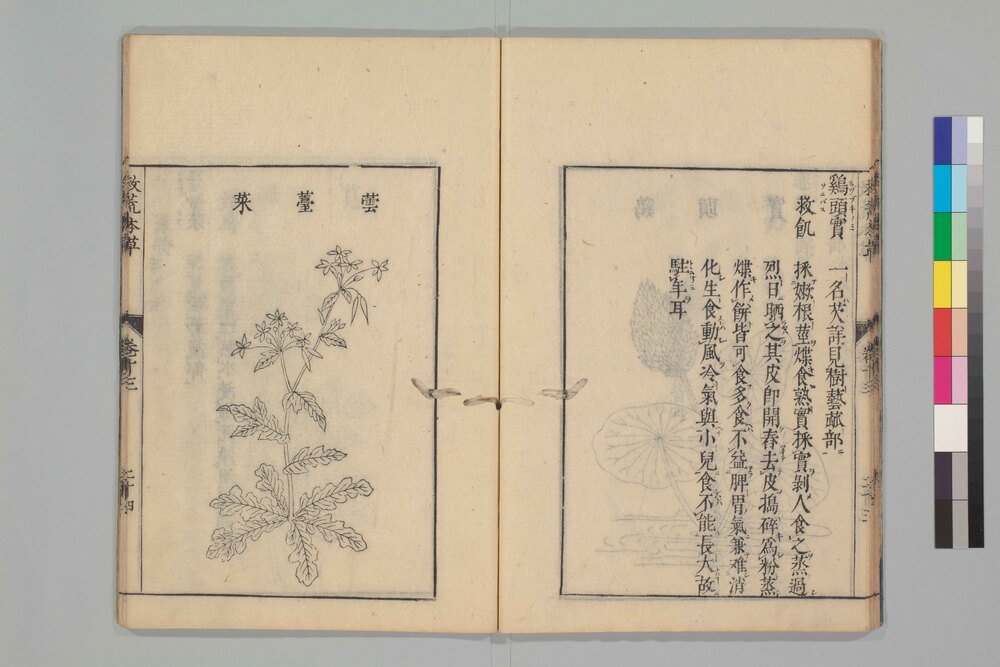 鷄頭實 一名芡詳見樹藝蓏部
救飢 採嫩根莖煠食熟實採實剝人食之蒸過
烈日晒之其皮即開舂去皮搗碎爲粉蒸
煠作餅皆可食多食不益脾胃氣兼难消
化生食動風冷氣與小兒食不能長大故
駐年耳
蕓薹菜
救荒本草
卷五十三
二十四